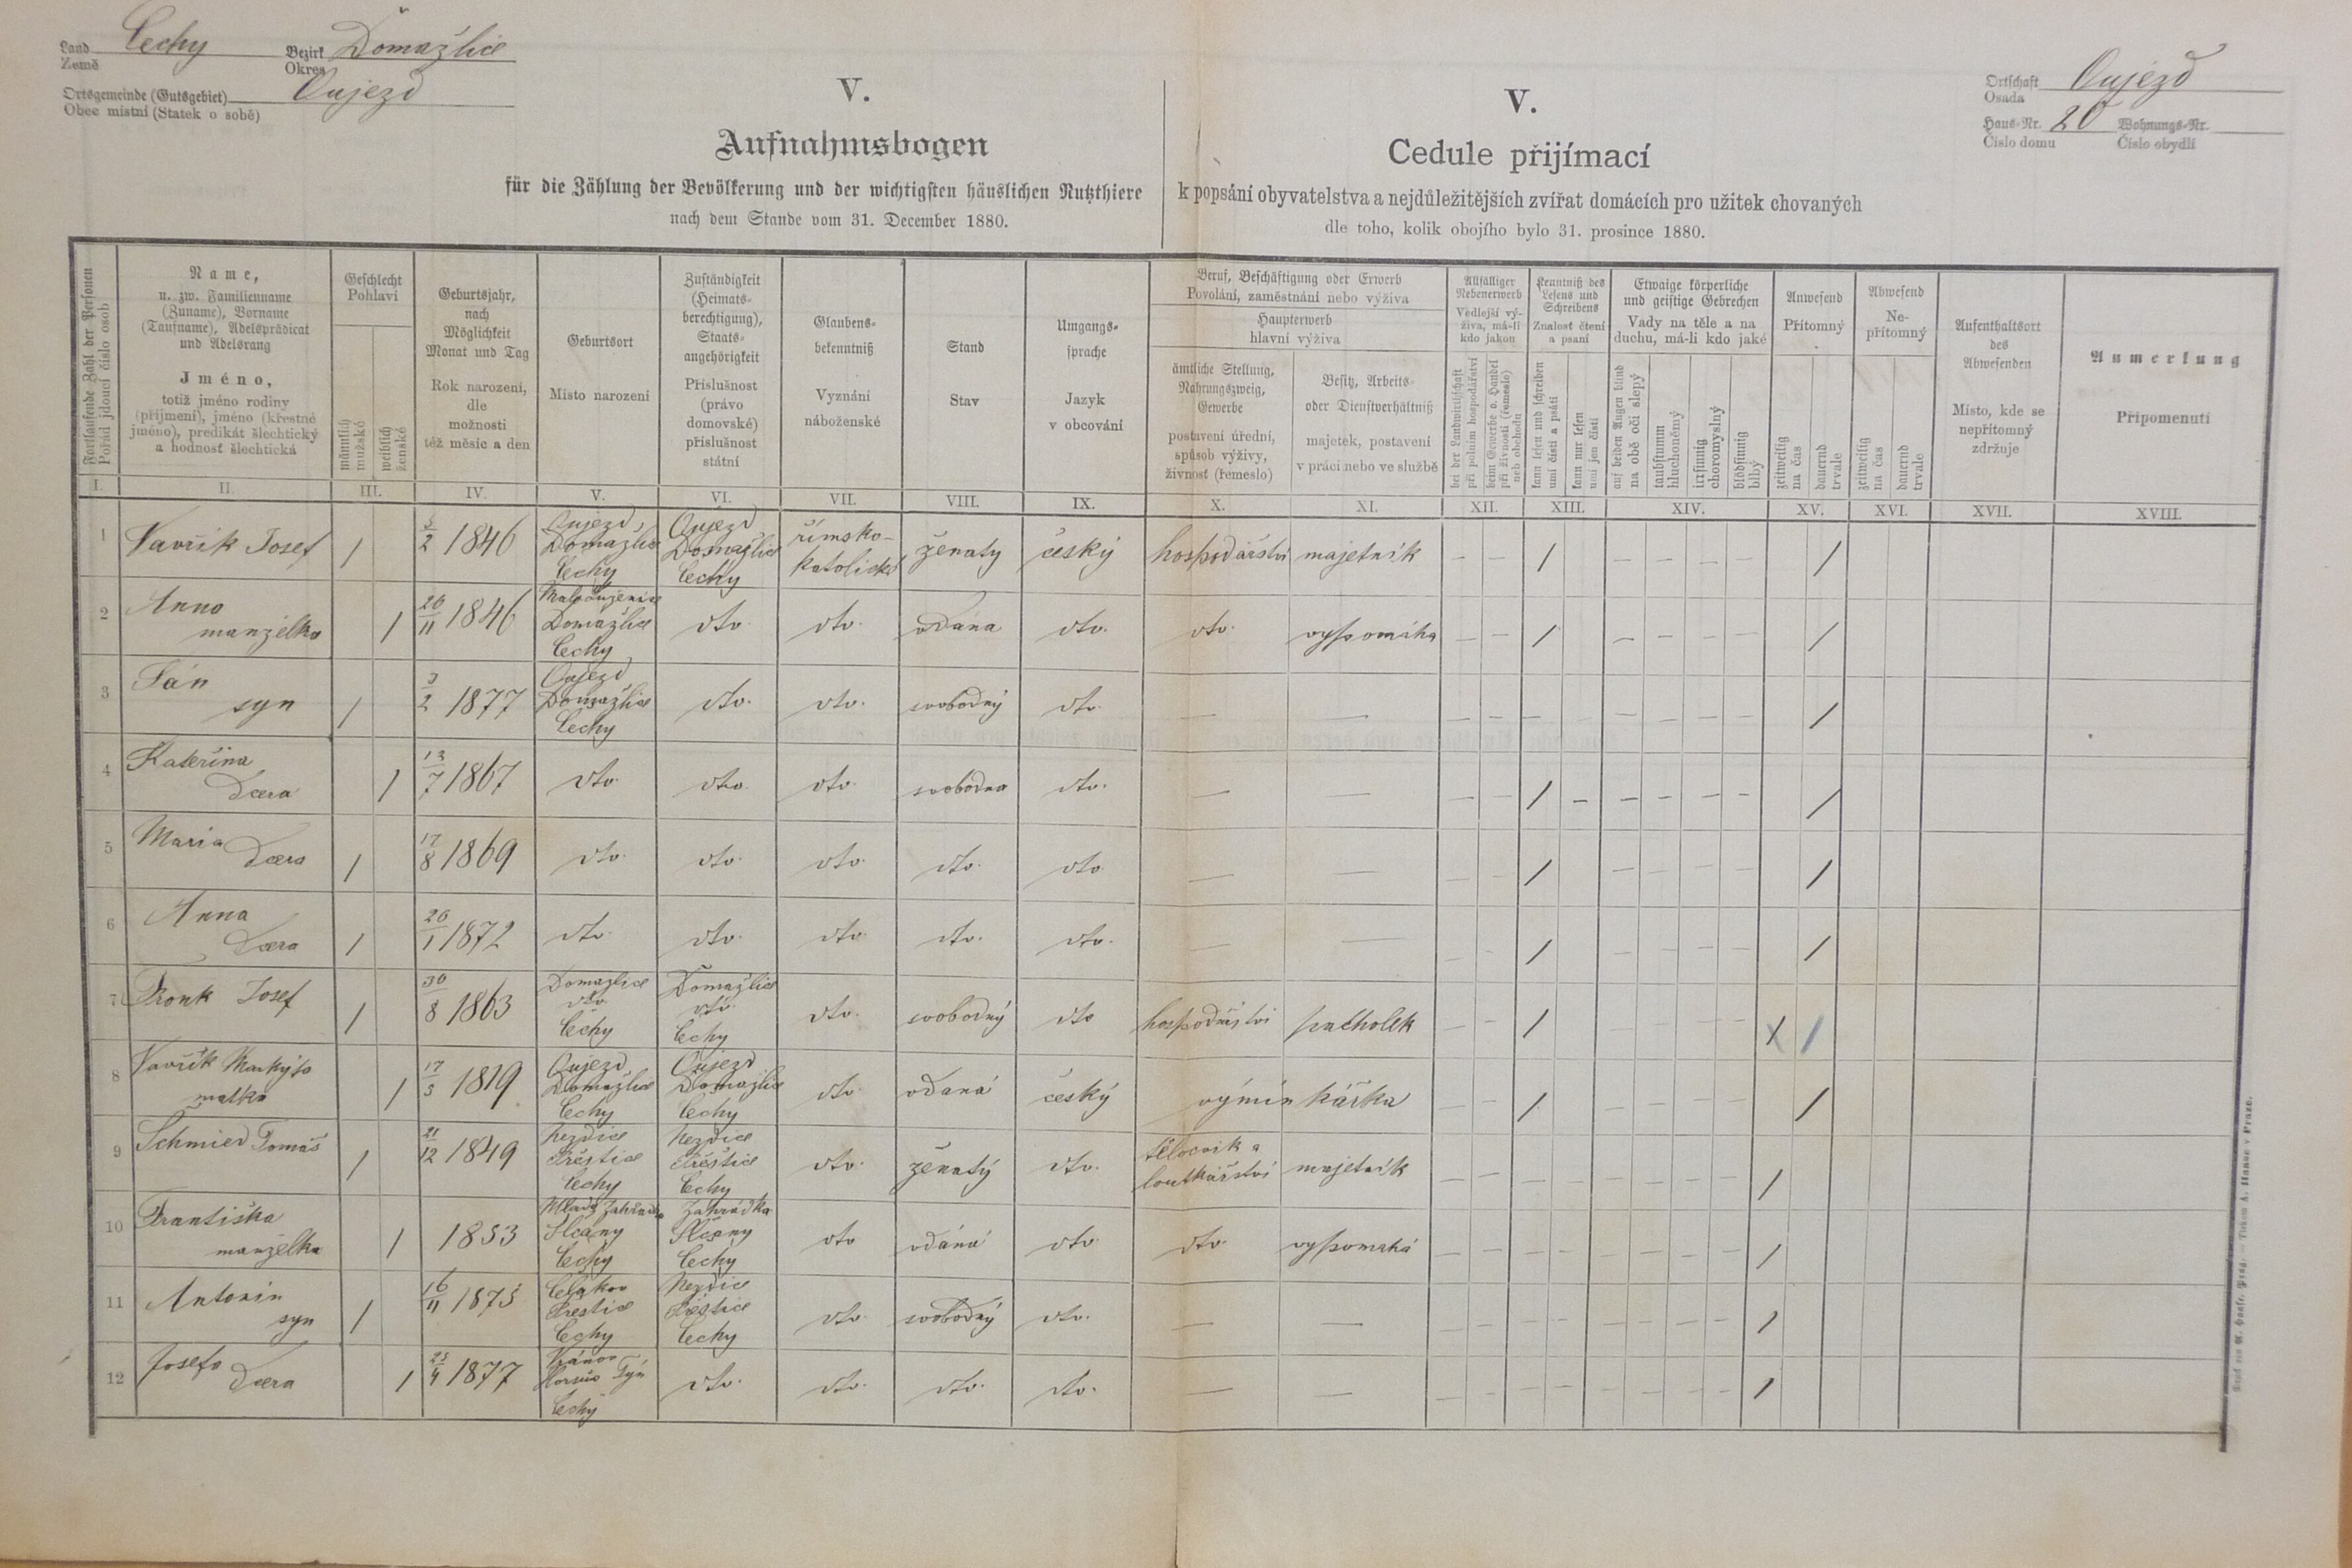 Land Čechy Bezirk Domažlice
Země Okres
Ortsgemeinde (Gutsgebiet) Oujezd
Obec místní (Statek o sobě)
V.
Aufnahmsbogen
für die Zählung der Bevölkerung und der wichtigsten häuslichen Nutzthiere
nach dem Stande vom 31. December 1880.
V.
Cedule přijímací
k popsání obyvatelstva a nejdůležitějších zvířat domácích pro užitek chovaných
dle toho, kolik obojího bylo 31. prosince 1880.
Ortschaft Oujezd
Osada
Haus-Nr. 20 Wohnungs-Nr.
Číslo domu Číslo obydlí
Fortlaufende Zahl der Personen
Pořád jdoucí číslo osob
Name,
u. zw. Familienname
(Zuname), Vorname
(Taufname), Adelsprädicat
und Adelsrang
Jméno,
totiž jméno rodiny
(příjmení), jméno (křestné
jméno), predikát šlechtický
a hodnosť šlechtická
Geschlecht
Pohlaví
männlich
mužské
weiblich
ženské
Geburtsjahr,
nach
Möglichkeit
Monat und Tag
Rok narození,
dle
možnosti
též měsíc a den
Geburtsort
Místo narození
Zuständigkeit
(Heimats-
berechtigung),
Staats-
angehörigkeit
Příslušnost
(právo
domovské)
příslušnost
státní
Glaubens-
bekenntniß
Vyznání
náboženské
Stand
Stav
Umgangs-
sprache
Jazyk
v obcování
Beruf, Beschäftigung oder Erwerb
Povolání, zaměstnání nebo výživa
Haupterwerb
hlavní výživa
ämtliche Stellung,
Nahrungszweig,
Gewerbe
postavení úřední,
spůsob výživy,
živnosť (řemeslo)
Besitz, Arbeits-
oder Dienstverhältniß
majetek, postavení
v práci nebo ve službě
Allfälliger
Nebenerwerb
Vedlejší vý-
živa, má-li
kdo jakou
bei der Landwirtschaft
při polním hospodářství
beim Gewerbe o. Handel
při živnosti (řemeslo)
neb obchodu
Kenntniß des
Lesens und
Schreibens
Znalosť čtení
a psaní
kann lesen und schreiben
umí čísti a psáti
kann nur lesen
umí jen čísti
Etwaige körperliche
und geistige Gebrechen
Vady na těle a na
duchu, má-li kdo jaké
auf beiden Augen blind
na obě oči slepý
taubstumm
hluchoněmý
irrsinnig
choromyslný
blödsinnig
blbý
Anwesend
Přítomný
zeitweilig
na čas
dauernd
trvale
Abwesend
Ne-
přítomný
zeitweilig
na čas
dauernd
trvale
Aufenthaltsort
des
Abwesenden
Místo, kde se
nepřítomný
zdržuje
Anmerkung
Připomenutí
I. II. III. IV. V. VI. VII. VIII. IX. X. XI. XII. XIII. XIV. XV. XVI. XVII. XVIII.
1 Vavřík Josef / 5/2 1846 Oujezd Domažlice Čechy Oujezd Domažlice Čechy římsko-katolické ženatý český hospodářství majetník — — / — — — — /
2 Anna manželka / 26/11 1846 Domažlice Čechy dto. dto. vdaná dto. dto. vypomáhá — — / — — — — /
3 Ján syn / 3/2 1877 Oujezd Domažlice Čechy dto. dto. svobodný dto. — — — — — — — — — — /
4 Kateřina Dcera / 13/7 1867 dto. dto. dto. svobodna dto. — — — — / — — — — — /
5 Maria Dcera / 17/8 1869 dto. dto. dto. dto. dto. — — — — / — — — — /
6 Anna Dcera / 26/1 1872 dto. dto. dto. dto. dto. — — — — / — — — — /
7 Josef / 30/8 1863 Domažlice dto. Čechy Domažlice dto. Čechy dto. svobodný dto hospodářství pacholek — — / — — — — X /
8 Vavřík Markyta matka / 17/3 1819 Oujezd Domažlice Čechy Oujezd Domažlice Čechy dto. vdaná český výminkářka — — / — — — — /
9 Schmied Tomáš / 21/12 1849 Nezdice Přeštice Čechy Nezdice Přeštice Čechy dto. ženatý dto. tělocvik a loutkářství majetník — — — — — — — — /
10 Františka manželka / 1853 Čechy Zahrádka Čechy dto vdáná dto. dto. vypomahá — — — — — — — — /
11 Antonín syn / 16/11 1875 Přeštice Čechy Nezdice Přeštice Čechy dto. svobodný dto. — — — — — — — — — — /
12 Josefa Dcera / 25/4 1877 Horšův Týn Čechy dto. dto. dto. dto. — — — — — — — — — — /